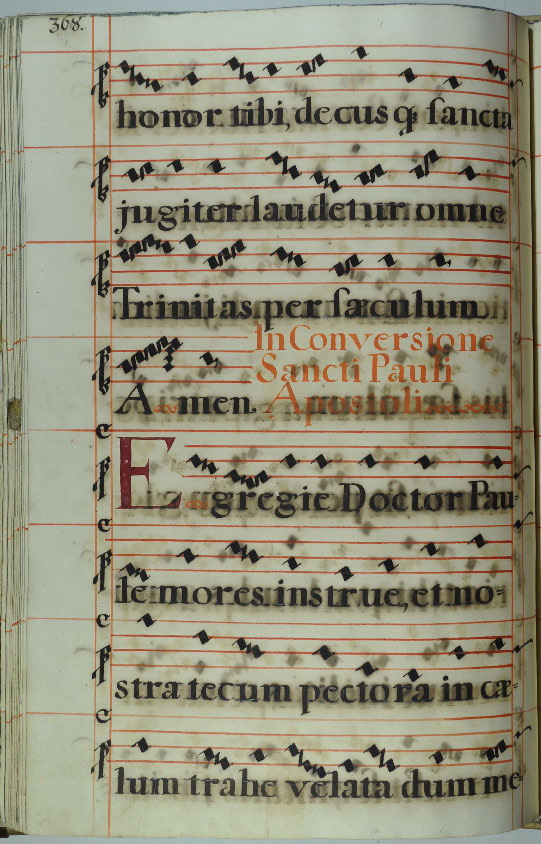 368.
honor tibi, decus q; sancta
jugiter laudetur omne
Trinitas per sæculum
In Conversione
Sancti Pauli
Amen. Apostoli
Egregie Doctor Pau-
le mores instrue, et no-
stra tecum pectora in cæ-
lum trahe velata dum me-